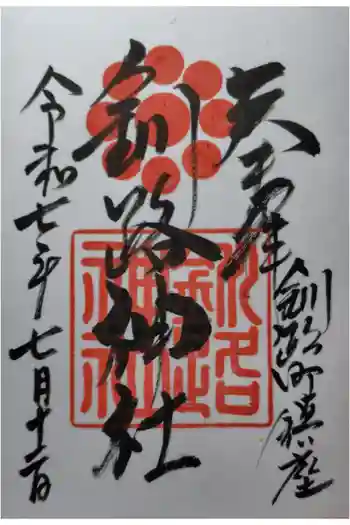 奉拝
釧路町鎮座
釧路神社
釧路神社
令和七年七月十二日